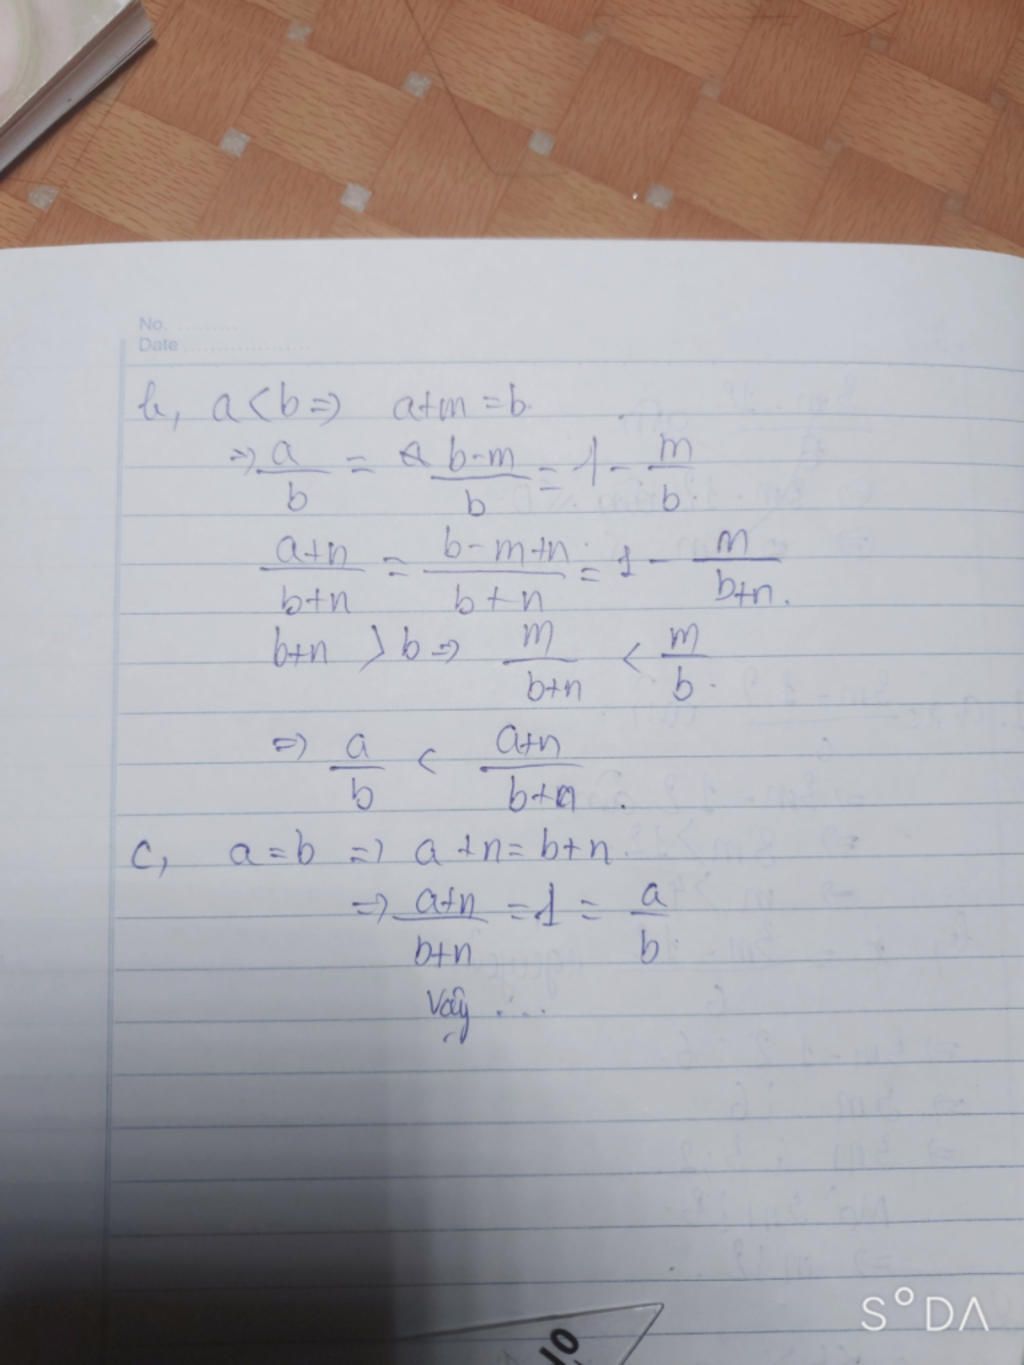 No. ..........
Date ....................
b, a < b ⇒ a+m = b.
⇒ a/b = b-m/b = 1 - m/b.
a+n/b+n = b-m+n/b+n = 1 - m/b+n.
b+n > b ⇒ m/b+n < m/b.
⇒ a/b < a+n/b+n.
c, a = b ⇒ a+n = b+n.
⇒ a+n/b+n = 1 = a/b.
Vậy ...
10
SODA